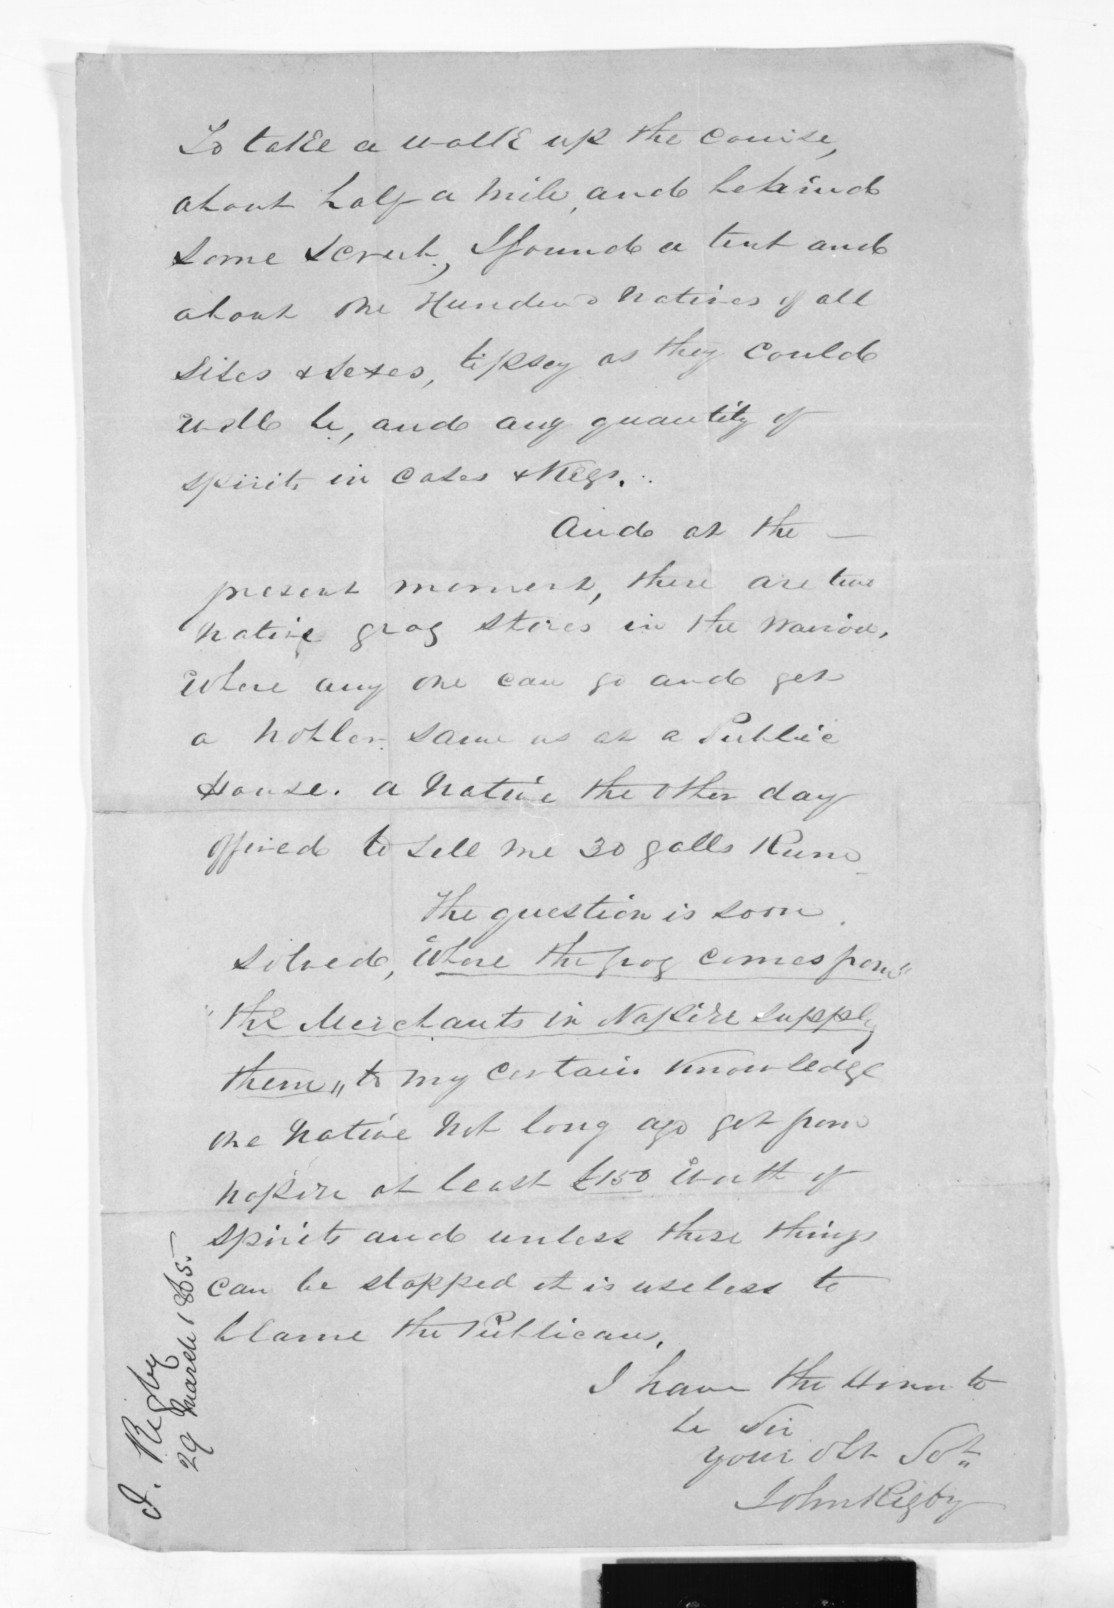 To take a walk up the course,
about half a mile, and behind
some scrub, I found a tent and
about one Hundred natives of all
sizes & sexes, tipsey as they could
well be, and any quantity of
spirits in cases & Kegs.
And at the —
present moment, there are two
native grog stores in the Wairoa,
where any one can go and get
a bottle same as at a Public
House. a native the other day
offired to sell me 30 galls Rum
The question is soon
solved, where the grog comes from"
"the Merchants in Napier supply
them" to my certain knowledge
one native not long ago got from
Napier at least £150 worth of
spirits and unless these things
can be stopped it is useless to
blame the Publicans.
I have the Honor to
be Sir
your Obt Svt"
John Rigby
J. Rigby
29 March 1865.